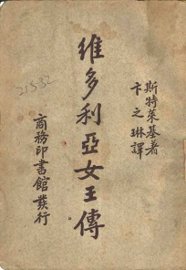 斯特萊基著
卞之琳譯
維多利亞女王傳
商務印書館發行
21532